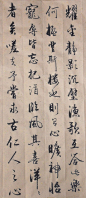 耀金静影沉璧漁歌互答此樂
何極登斯樓也則有心曠神怡
寵辱皆忘把酒臨風其喜洋洋
者矣嗟夫予嘗求古仁人之心